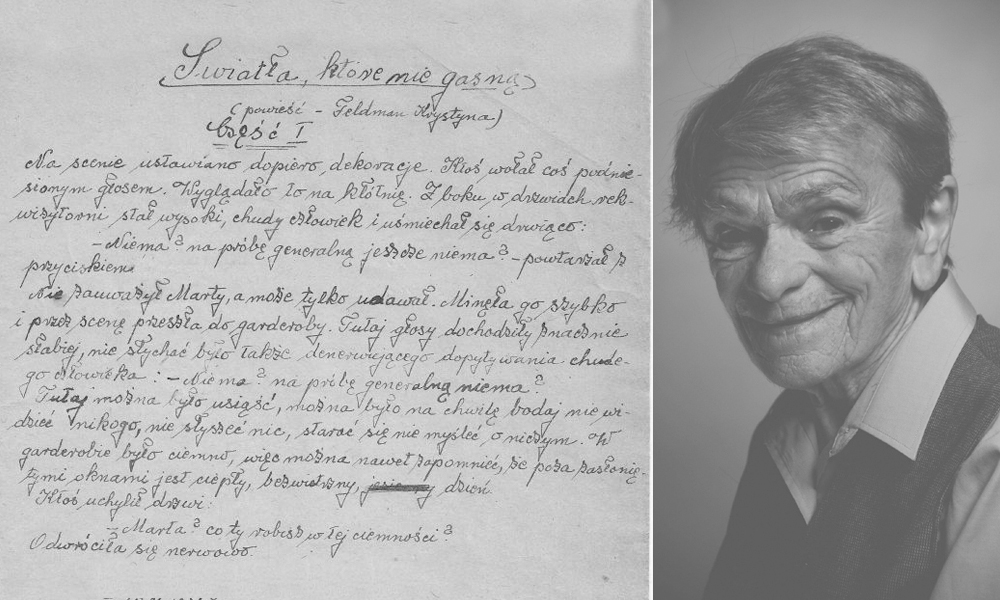 Światła, które nie gasną
(powieść - Feldman Krystyna)
Część I
Na scenie ustawiano dopiero dekoracje. Ktoś wołał coś podnie-
sionym głosem. Wyglądało to na kłótnię. Z boku, w drzwiach rek-
wizytorni stał wysoki, chudy człowiek i uśmiechał się drwiąco:
- Niema? na próbę generalną jeszcze niema? - powtarzał z
przyciskiem.
Nie zauważył Marty, a może tylko udawał. Minęła go szybko
i przez scenę przeszła do garderoby. Tutaj głosy dochodziły znacznie
słabiej, nie słychać było także denerwującego dopytywania chude-
go człowieka: - Niema? na próbę generalną niema?
Tutaj można było usiąść, można było na chwilę bodaj nie wi-
dzieć nikogo, nie słyszeć nic, starać się nie myśleć o niczym. W
garderobie było ciemno, więc można nawet zapomnieć, że poza zasłonię-
tymi oknami jest ciepły, bezwietrzny, dzień.
Ktoś uchylił drzwi:
- Marta? co ty robisz w tej ciemności?
Odwróciła się nerwowo.